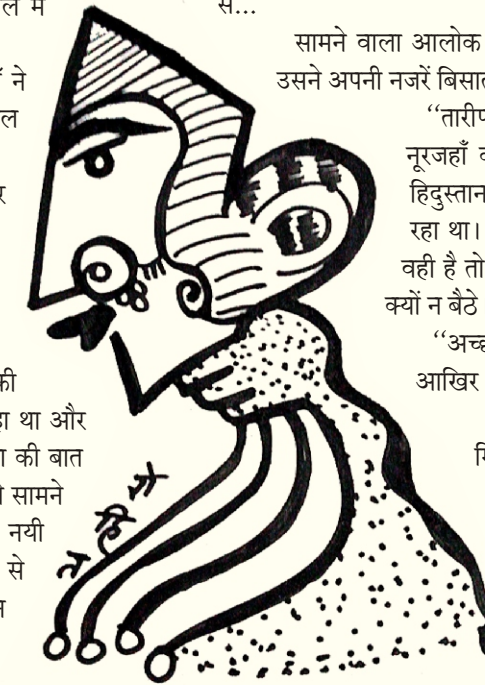 ल में
ँ ने
ल
र
की
हा था और
ा की बात
ो सामने
नयी
से
स
से...
सामने वाला आलोक
उसने अपनी नजरें बिसात
‘‘तारीफ
नूरजहाँ व
हिदुस्तान
रहा था।
वही है तो
क्यों न बैठे
‘‘अच्छ
आखिर
मि